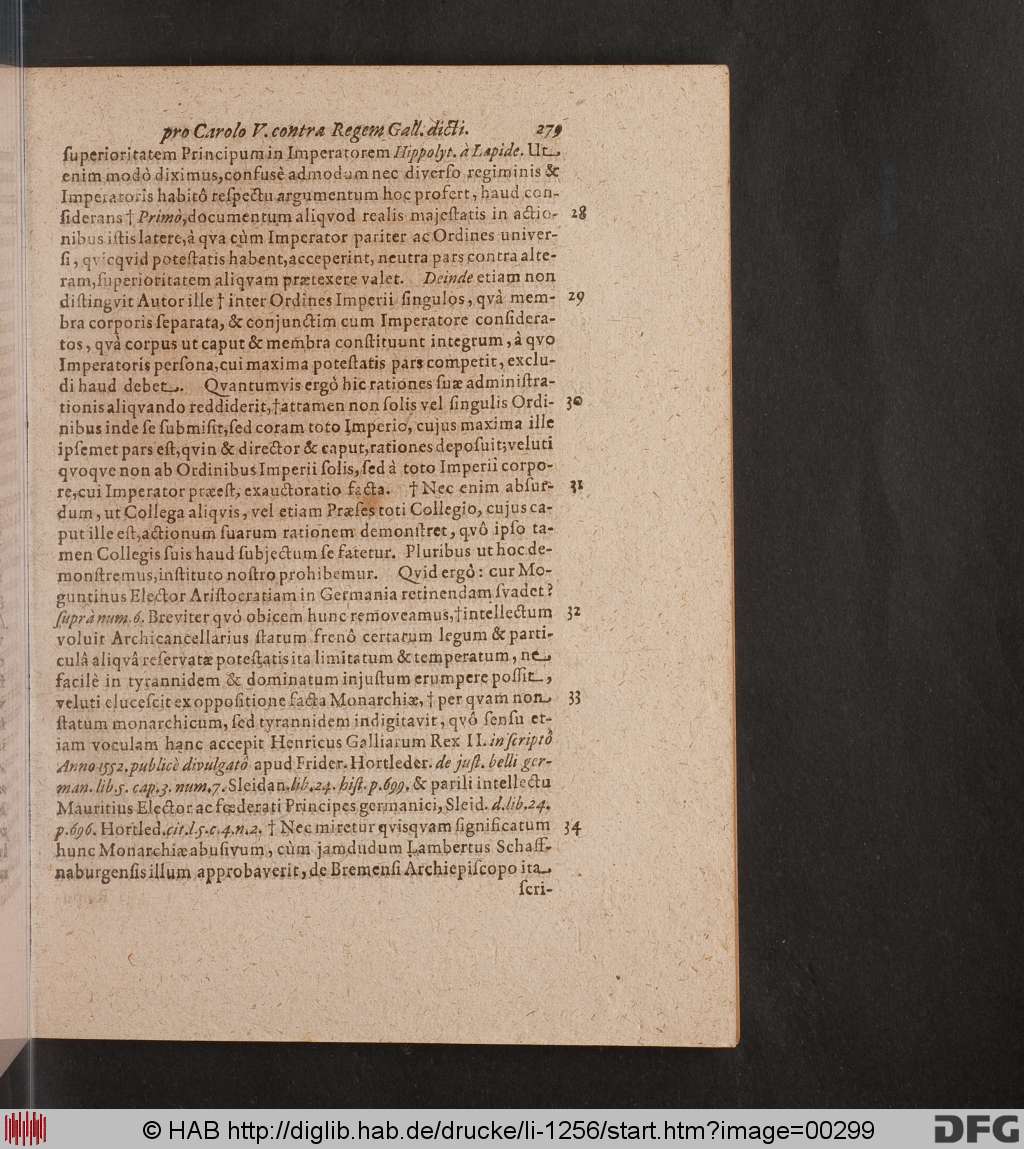 pro Carolo V. contra Regem Gall. dicti. 279
ſuperioritatem Principum in Imperatorem Hippolyt. à Lapide. Ut
enim modò diximus, confusè admodum nec diverſo regiminis &
Imperatoris habitô reſpectu argumentum hoc profert, haud con-
ſiderans † Primò, documentum aliqvod realis majeſtatis in actio- 28
nibus iſtis latere, à qva cùm Imperator pariter ac Ordines univer-
ſi, qvicqvid poteſtatis habent, acceperint, neutra pars contra alte-
ram, ſuperioritatem aliqvam prætexere valet. Deinde etiam non
diſtingvit Autor ille † inter Ordines Imperii ſingulos, qvà mem- 29
bra corporis ſeparata, & conjunctim cum Imperatore conſidera-
tos, qvà corpus ut caput & membra conſtituunt integrum, â qvo
Imperatoris perſona, cui maxima poteſtatis pars competit, exclu-
di haud debet. Qvantumvis ergò hic rationes ſuæ adminiſtra-
tionis aliqvando reddiderit, † attamen non ſolis vel ſingulis Ordi- 30
nibus inde ſe ſubmiſit, ſed coram toto Imperio, cujus maxima ille
ipſemet pars eſt, qvin & director & caput, rationes depoſuit; veluti
qvoqve non ab Ordinibus Imperii ſolis, ſed à toto Imperii corpo-
re, cui Imperator præeſt, exauctoratio facta. † Nec enim abſur- 31
dum, ut Collega aliqvis, vel etiam Præſes toti Collegio, cujus ca-
put ille eſt, actionum ſuarum rationem demonſtret, qvô ipſo ta-
men Collegis ſuis haud ſubjectum ſe fatetur. Pluribus ut hoc de-
monſtremus, inſtituto noſtro prohibemur. Qvid ergô: cur Mo-
guntinus Elector Ariſtocratiam in Germania retinendam ſvadet?
ſuprà num. 6. Breviter qvó obicem hunc removeamus, † intellectum 32
voluit Archicancellarius ſtatum frenô certarum legum & parti-
culâ aliqvâ reſervatæ poteſtatis ita limitatum & temperatum, ne
facilè in tyrannidem & dominatum injuſtum erumpere poſſit,
veluti eluceſcit ex oppoſitione facta Monarchiæ, † per qvam non 33
ſtatum monarchicum, ſed tyrannidem indigitavit, qvô ſenſu et-
iam voculam hanc accepit Henricus Galliarum Rex II. in ſcriptô
Anno 1552. publicè divulgatô apud Frider. Hortleder. de juſt. belli ger-
man. lib. 5. cap. 3. num. 7. Sleidan. lib. 24. hiſt. p. 699. & parili intellectu
Mauritius Elector ac fœderati Principes germanici, Sleid. d. lib. 24.
p. 696. Hortled. cit. l. 5. c. 4. n. 2. † Nec miretur qvisqvam ſignificatum 34
hunc Monarchiæ abuſivum, cùm jamdudum Lambertus Schaff-
naburgenſis illum approbaverit, de Bremenſi Archiepiſcopo ita
ſcri-
© HAB http://diglib.hab.de/drucke/li-1256/start.htm?image=00299
DFG